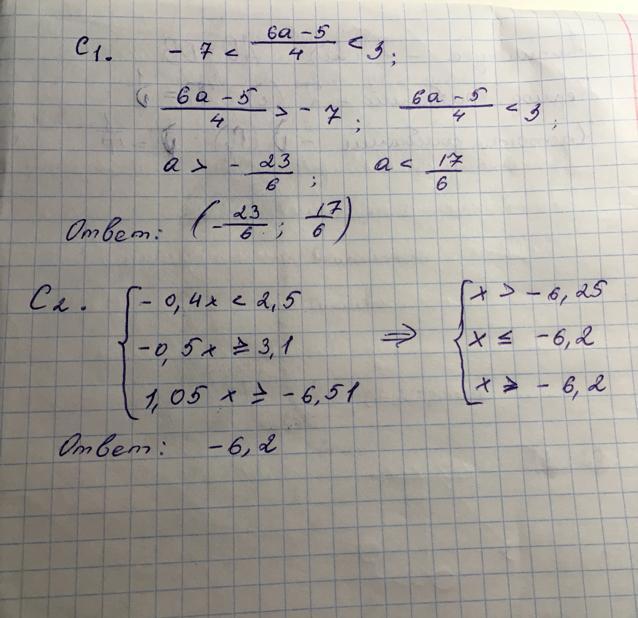 C1. - 7 < (6a - 5)/4 < 3;
(6a - 5)/4 > - 7; (6a - 5)/4 < 3;
a > - 23/6; a < 17/6
Ответ: (- 23/6; 17/6)
C2. { - 0,4x < 2,5 ⇒ { x > - 6,25
-0,5x ≥ 3,1 x ≤ -6,2
1,05 x ≥ - 6,51 x ≥ - 6,2
Ответ: -6,2